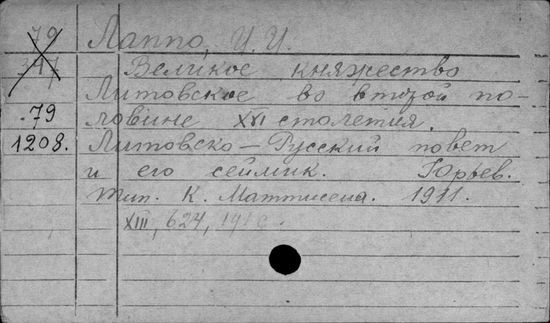 79 Лаппо, И. И.
Великое княжество
Литовское во второй по-
.79 ловине XVI столетия.
1208. Литовско-Русский повет
и его сеймик. Юрьев.
тип. К. Маттисена. 1911.
XIII, 624,